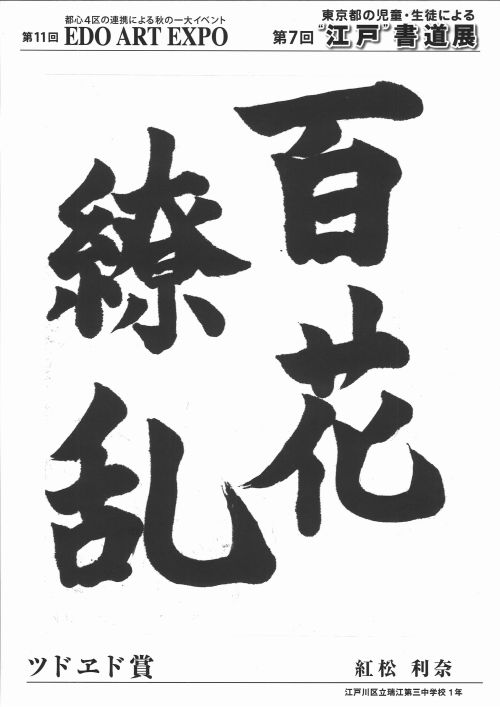 都心4区の連携による秋の一大イベント
第11回 EDO ART EXPO
東京都の児童・生徒による
第7回 “江戸”書道展
百花
繚乱
ツドヱド賞
紅松 利奈
江戸川区立瑞江第三中学校 1年